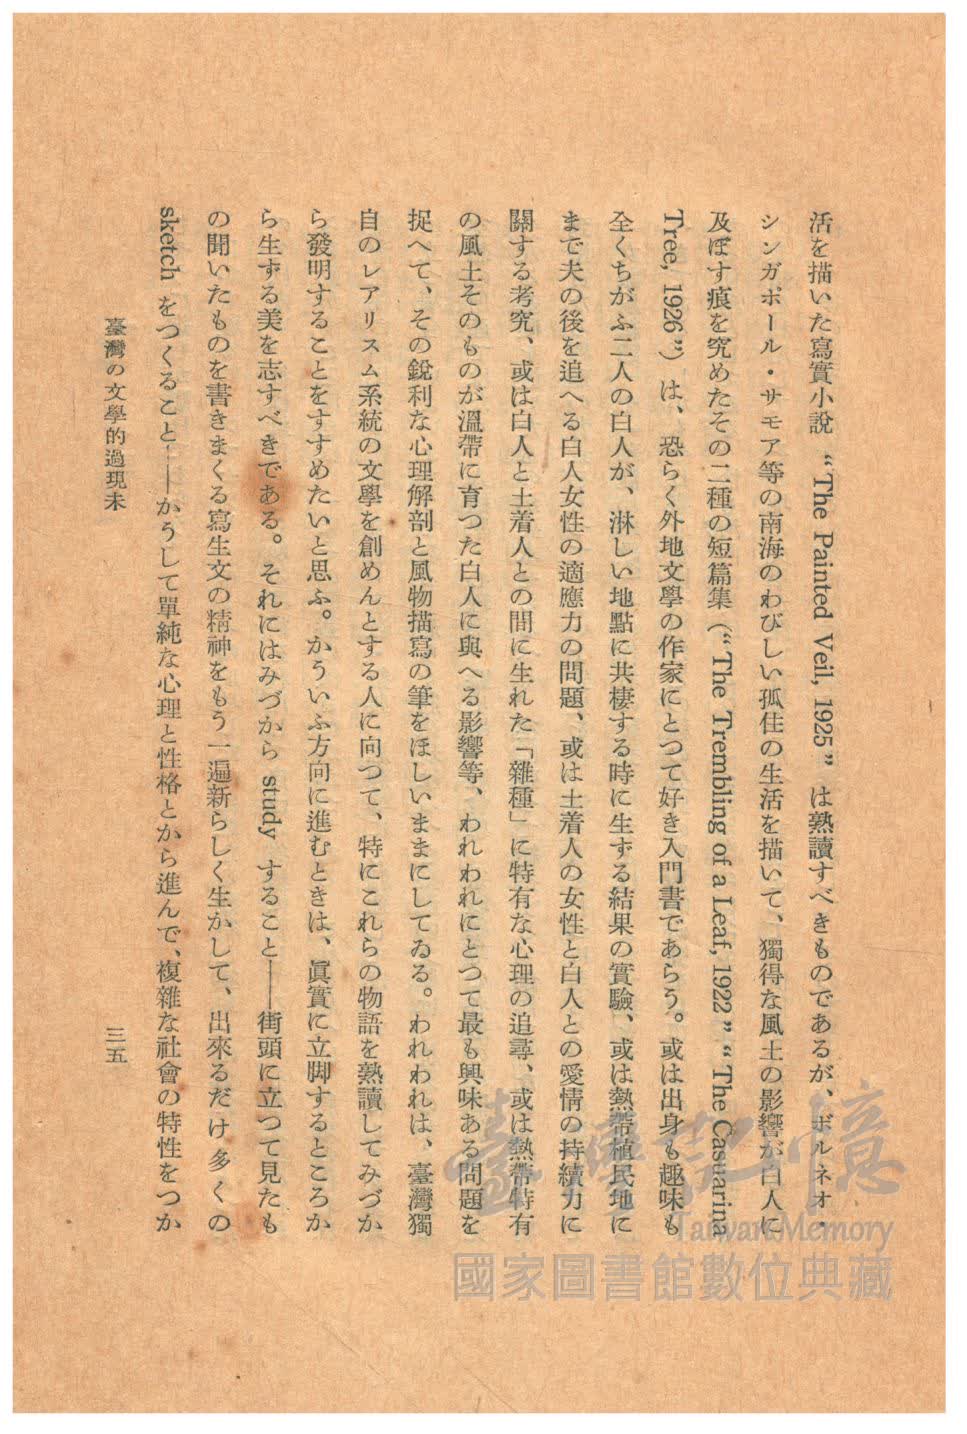 活を描いた寫實小說 “The Painted Veil, 1925” は熟讀すべきものであるが、ボルネオ・
シンガポール・サモア等の南海のわびしい孤住の生活を描いて、獨得な風土の影響が白人に
及ぼす痕を究めたその二種の短篇集 (“The Trembling of a Leaf, 1922” “The Casuarina
Tree, 1926”) は、恐らく外地文學の作家にとつて好き入門書であらう。或は出身も趣味も
全くちがふ二人の白人が、淋しい地點に共棲する時に生ずる結果の實驗、或は熱帶植民地に
まで夫の後を追へる白人女性の適應力の問題、或は土着人の女性と白人との愛情の持續力に
關する考究、或は白人と土着人との間に生れた「雜種」に特有な心理の追尋、或は熱帶特有
の風土そのものが溫帶に育つた白人に與へる影響等、われわれにとつて最も興味ある問題を
捉へて、その銳利な心理解剖と風物描寫の筆をほしいままにしてゐる。われわれは、臺灣獨
自のレアリスム系統の文學を創めんとする人に向つて、特にこれらの物語を熟讀してみづか
ら發明することをすすめたいと思ふ。かういふ方向に進むときは、眞實に立脚するところか
ら生ずる美を志すべきである。それにはみづから study すること――街頭に立つて見たも
の聞いたものを書きまくる寫生文の精神をもう一遍新らしく生かして、出來るだけ多くの
sketch をつくること――かうして單純な心理と性格とから進んで、複雜な社會の特性をつか
臺灣の文學的過現未
三五
臺灣記憶
Taiwan Memory
國家圖書館數位典藏